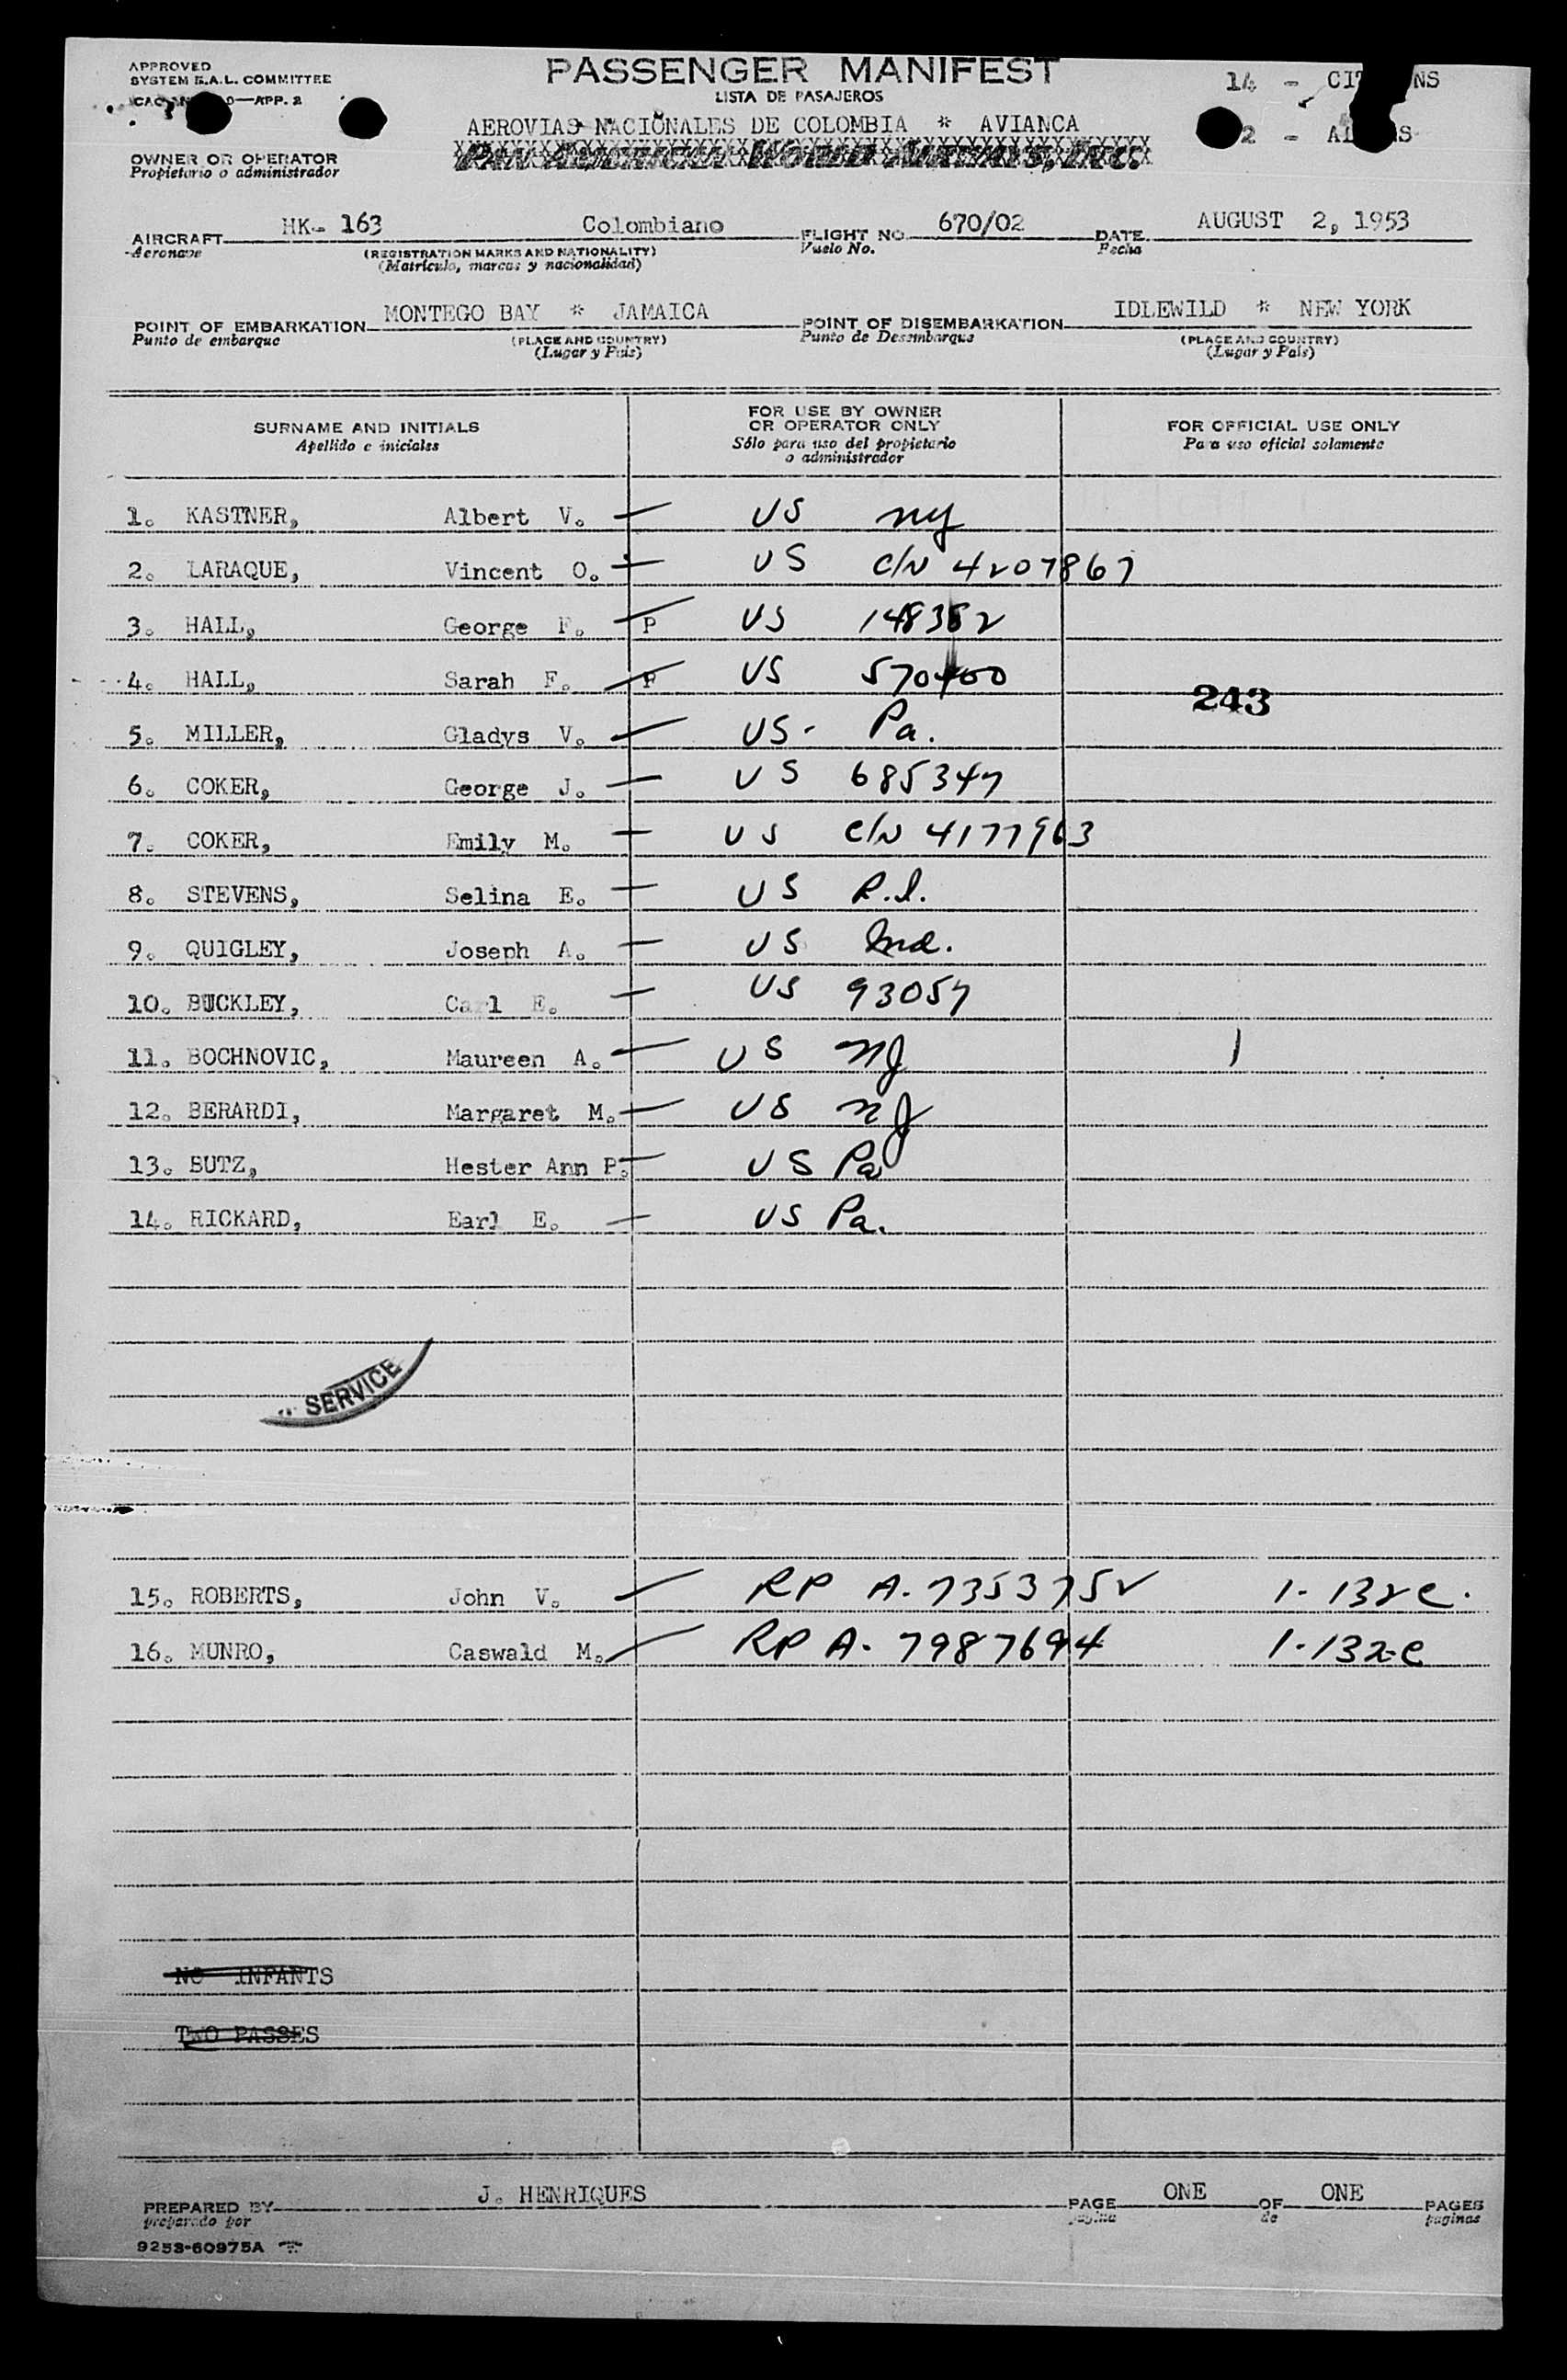 APPROVED
SYSTEM R.A.L. COMMITTEE
APP. 2
PASSENGER MANIFEST
LISTA DE PASAJEROS
14 -
2 -
AEROVIAS NACIONALES DE COLOMBIA * AVIANCA
PAN AMERICAN WORLD AIRWAYS, INC.
OWNER OR OPERATOR
Propietario o administrador
AIRCRAFT HK- 163 Colombiano FLIGHT NO. 670/02 DATE AUGUST 2, 1953
Aeronave (REGISTRATION MARKS AND NATIONALITY) Vuelo No. Fecha
(Matricula, marcas y nacionalidad)
POINT OF EMBARKATION MONTEGO BAY * JAMAICA POINT OF DISEMBARKATION IDLEWILD * NEW YORK
Punto de embarque (PLACE AND COUNTRY) Punto de Desembarque (PLACE AND COUNTRY)
(Lugar y País) (Lugar y País)
SURNAME AND INITIALS
Apellido e iniciales
FOR USE BY OWNER
OR OPERATOR ONLY
Sólo para uso del propietario
o administrador
FOR OFFICIAL USE ONLY
Para uso oficial solamente
1. KASTNER, Albert V. US NY
2. LARAQUE, Vincent O. US C/N 4207867
3. HALL, George F. P US 148382
4. HALL, Sarah F. P US 570400
243
5. MILLER, Gladys V. US- Pa.
6. COKER, George J. US 685347
7. COKER, Emily M. US C/N 4177963
8. STEVENS, Selina E. US R.I.
9. QUIGLEY, Joseph A. US Ind.
10. BUCKLEY, Carl E. US 93057
11. BOCHNOVIC, Maureen A. US NJ 1
12. BERARDI, Margaret M. US NJ
13. BUTZ, Hester Ann P. US Pa
14. RICKARD, Earl E. US Pa.
SERVICE
15. ROBERTS, John V. RP A-7353752 1-132e.
16. MUNRO, Caswald M. RP A-7987694 1-132e
NO INFANTS
TWO PASSES
PREPARED BY J. HENRIQUES PAGE ONE OF ONE PAGES
preparado por pagina de paginas
9253-60975A